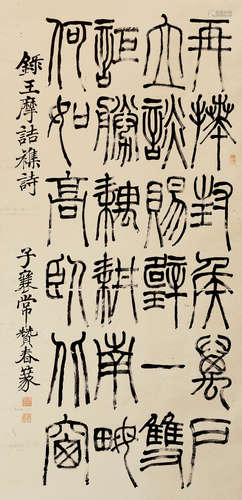 再捧封侯萬戶
立談賜璧一雙
詎勝耦耕南畝
何如高臥北窗
錄王摩詰襍詩
子襄常贊春篆